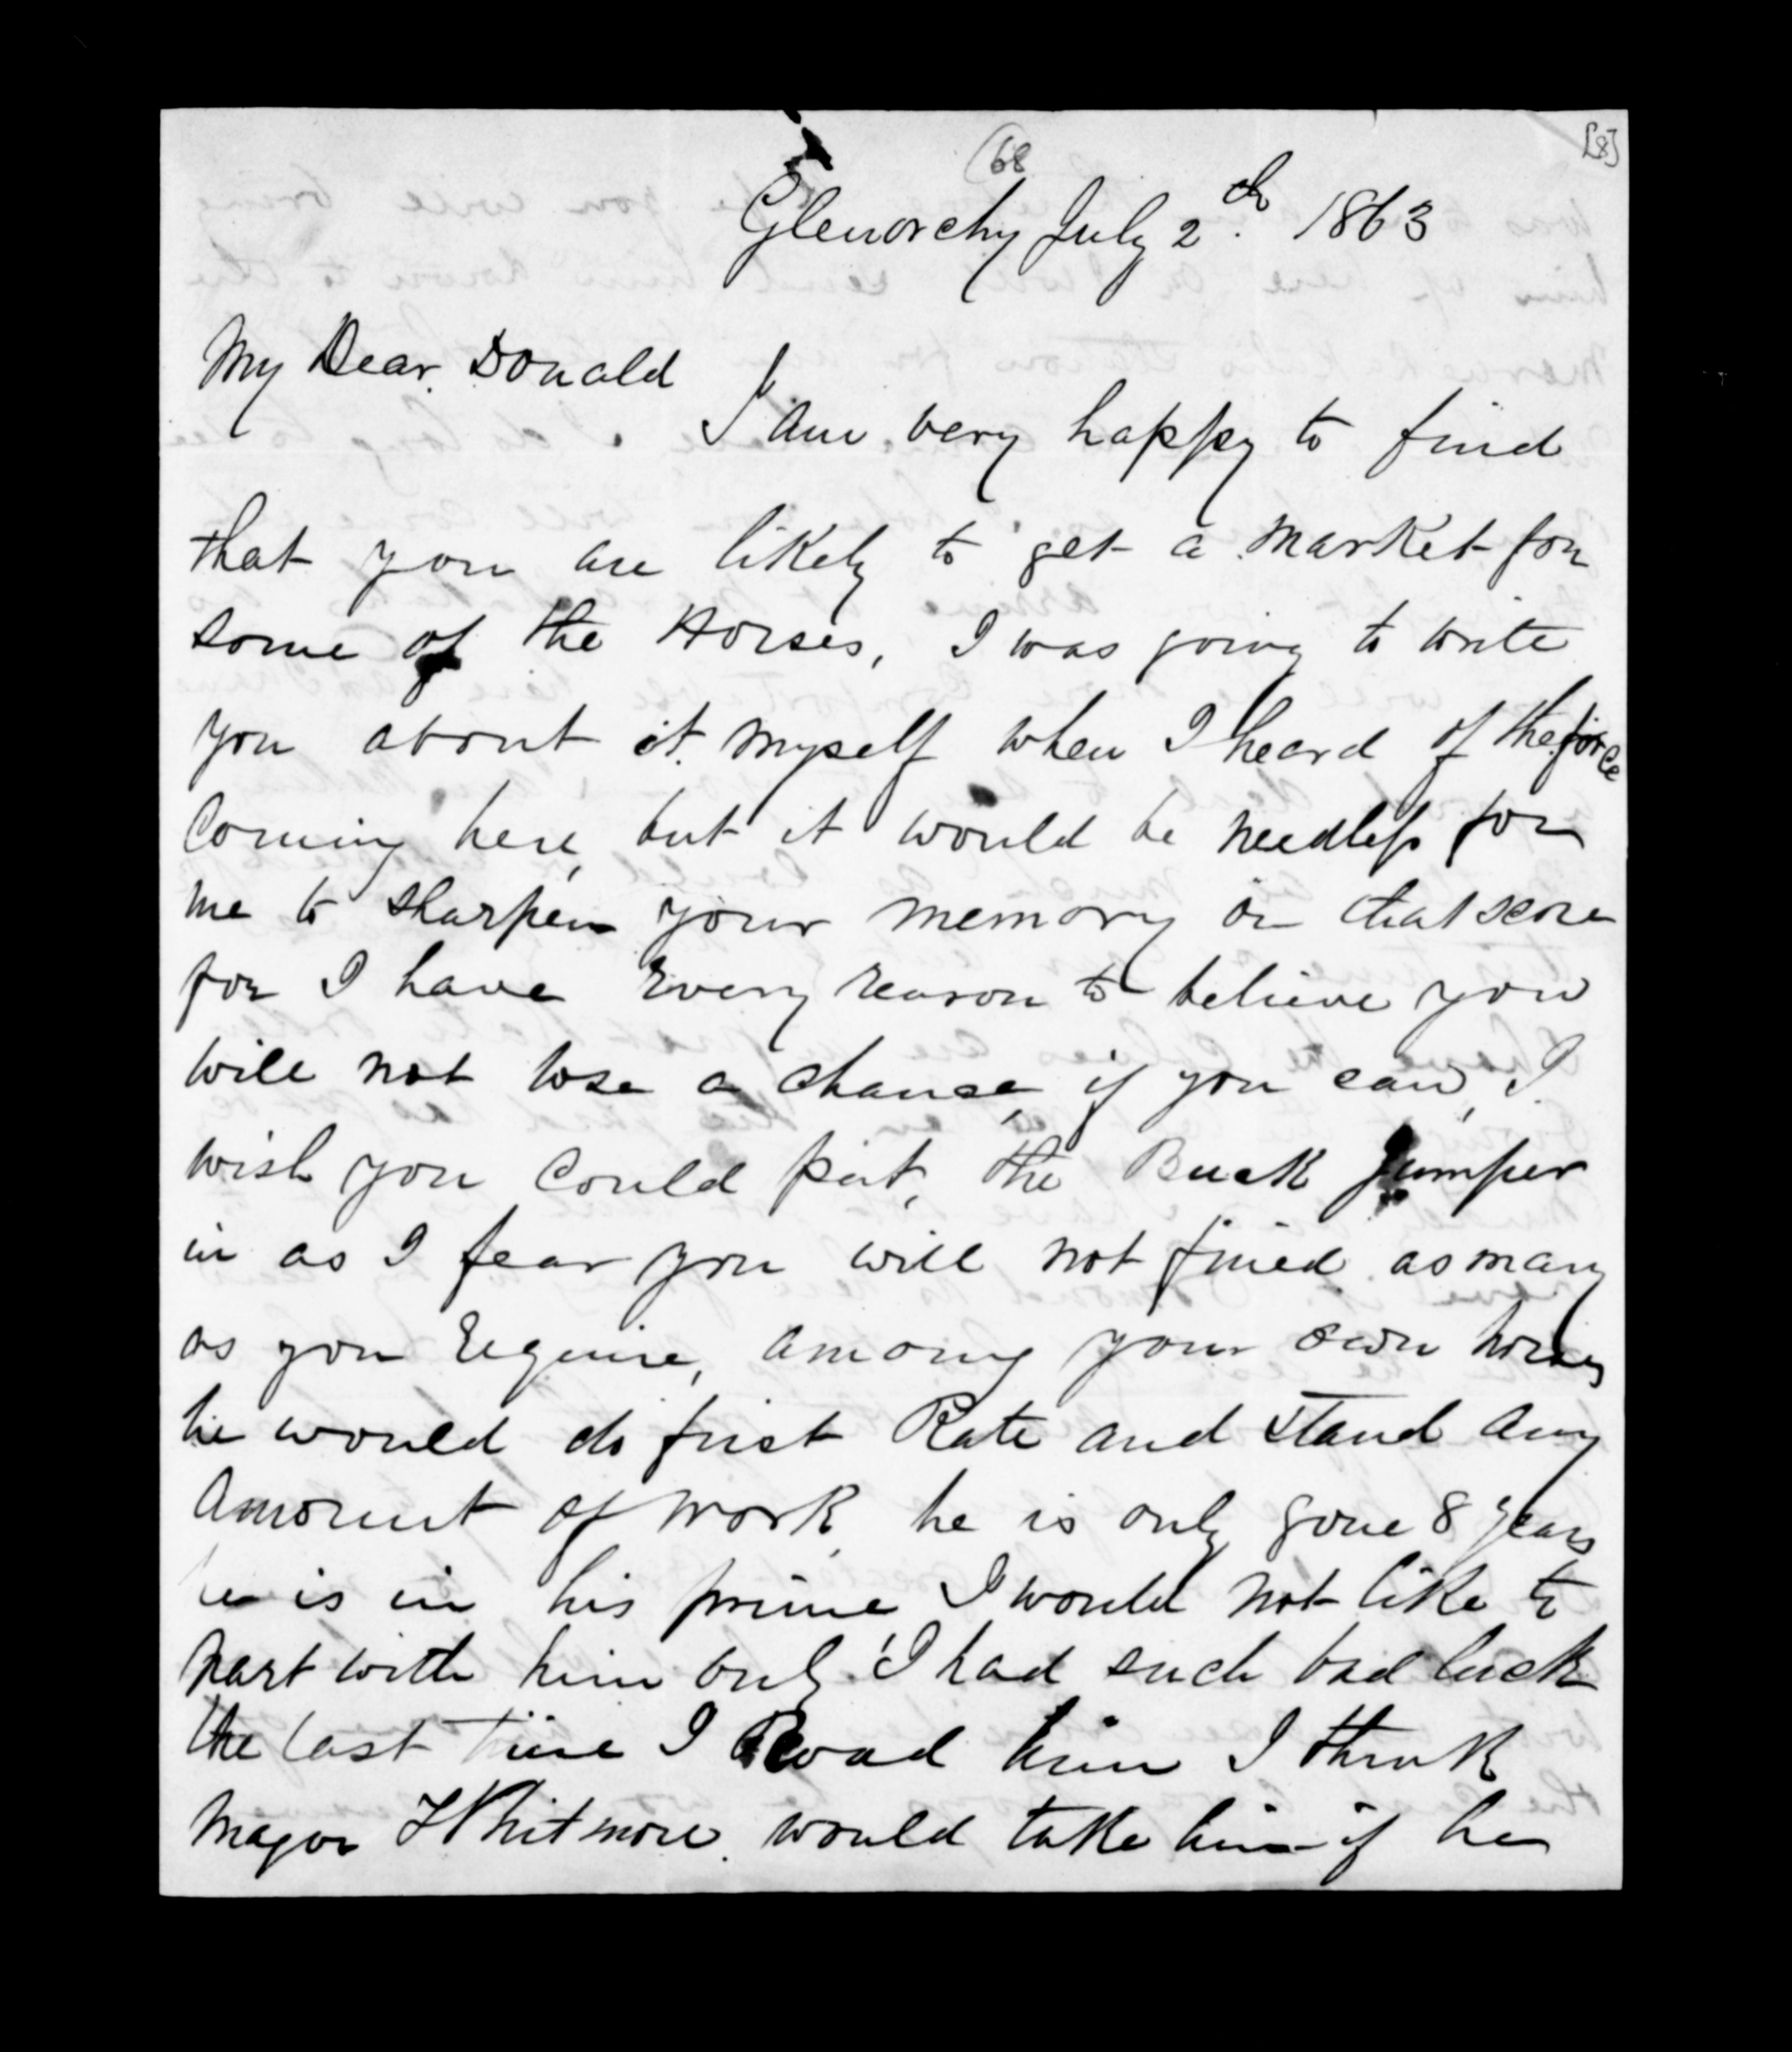 (68
[8]
Glenorchy July 2th. 1863
My Dear Donald
I am very happy to find
that you are likely to get a market for
some of the Horses, I was going to write
you about it myself when I heard of the force
Coming here, but it would be needless for
me to sharpen your memory on that score
for I have Every reason to believe you
will not lose a chance, if you can, I
wish you Could put, the Buck Jumper
in as I fear you will not fined as many
as you require, among your own horses
he would do first Rate and stand any
Amount of work, he is only gone 8 years
he is in his prime I would not like to
part with him only I had such bad luck
the last time I Road him I think
Major Whitmore would take him if he